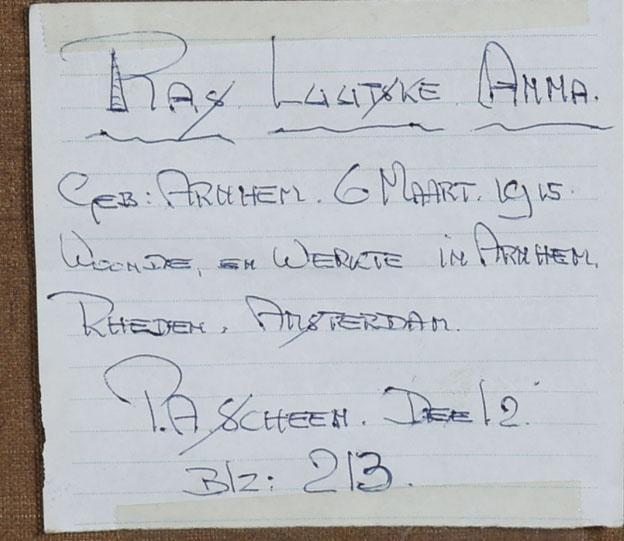 RAS LUUTSKE ANNA.
GEB: ARNHEM. 6 MAART. 1915.
WOONDE, EN WERKTE IN ARNHEM,
RHEDEN, AMSTERDAM.
P.A SCHEEN. DEEL 2.
Blz: 213.